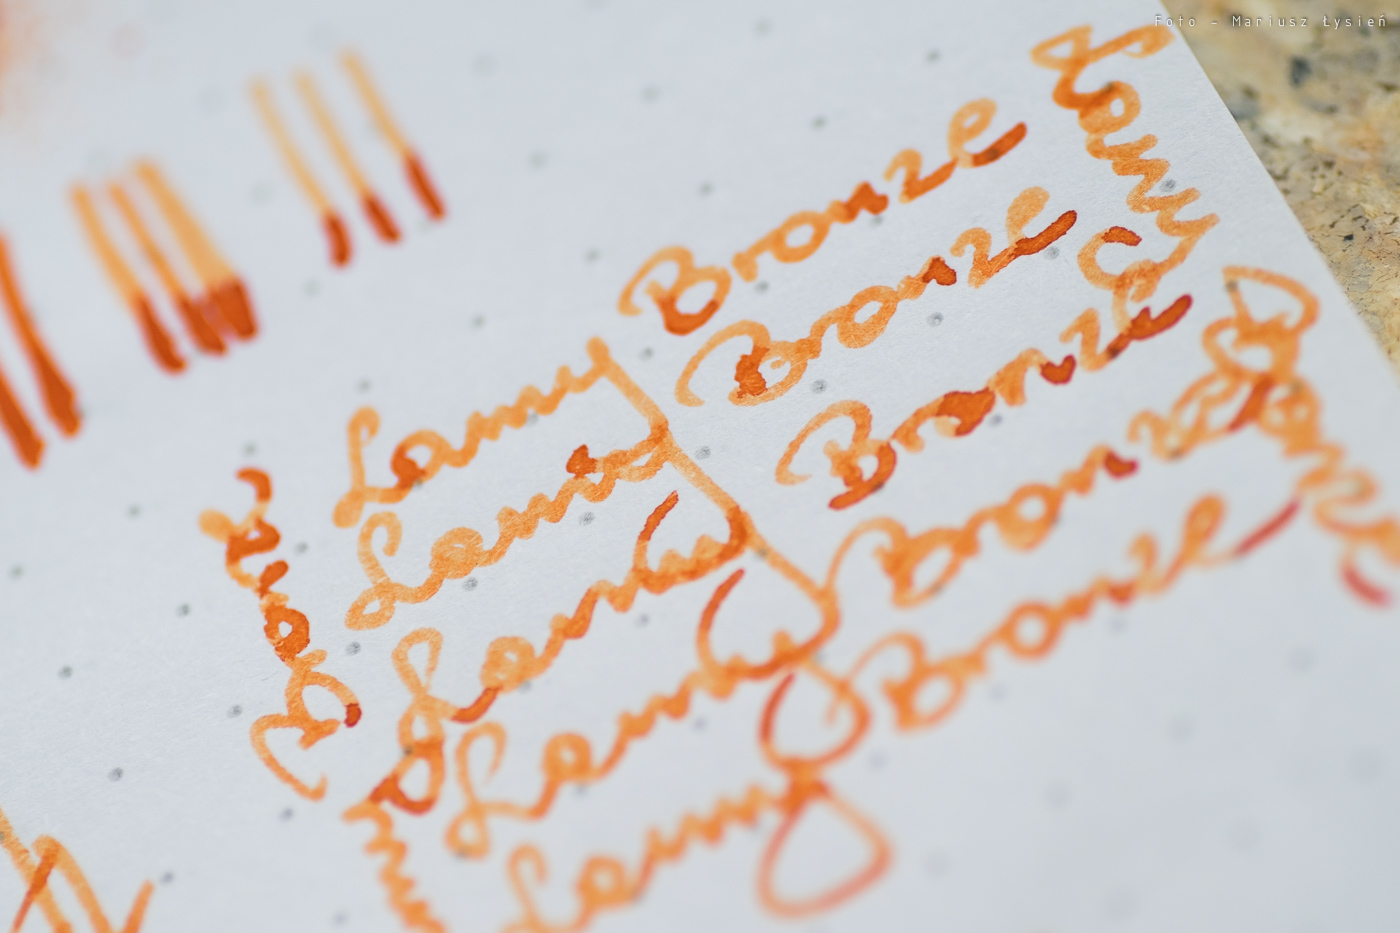 Foto - Mariusz Łysień
Lamy Bronze
Lamy Bronze
Lamy Bronze
Lamy Bronze
Lamy Bronze
Lamy
Bronze
Bronze